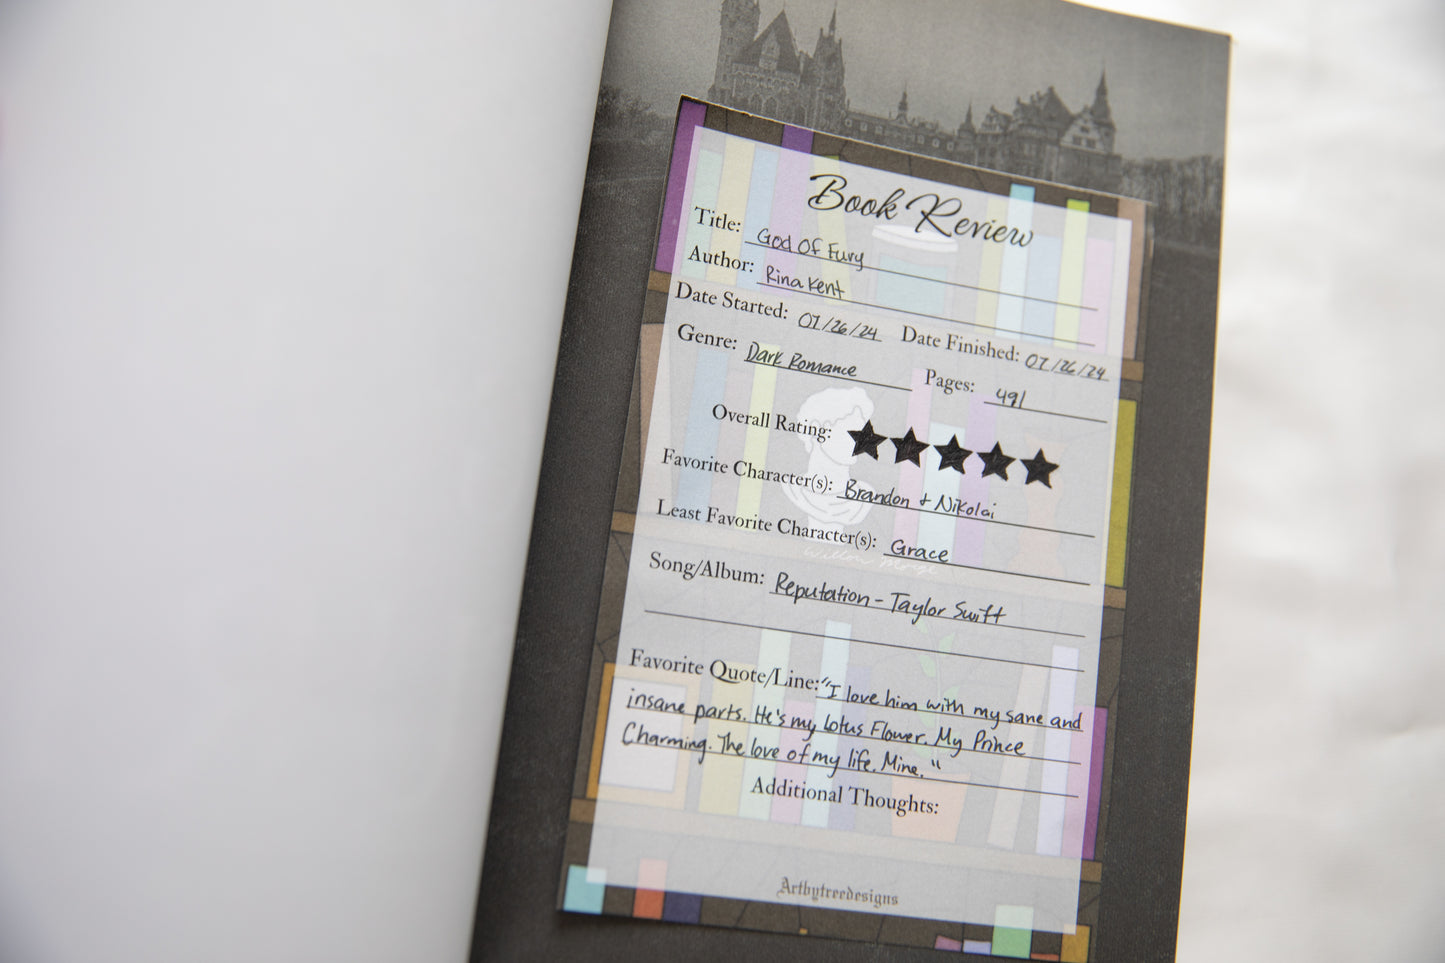 Book Review
Title: God Of Fury
Author: Rina Kent
Date Started: 07/26/24 Date Finished: 07/26/24
Genre: Dark Romance Pages: 491
Overall Rating: ★★★★★
Favorite Character(s): Brandon + Nikolai
Least Favorite Character(s): Grace
Willow Morge
Song/Album: Reputation - Taylor Swift
Favorite Quote/Line: "I love him with my sane and
insane parts. He's my lotus Flower. My Prince
Charming. The love of my life. Mine."
Additional Thoughts:
Artbytreedesigns